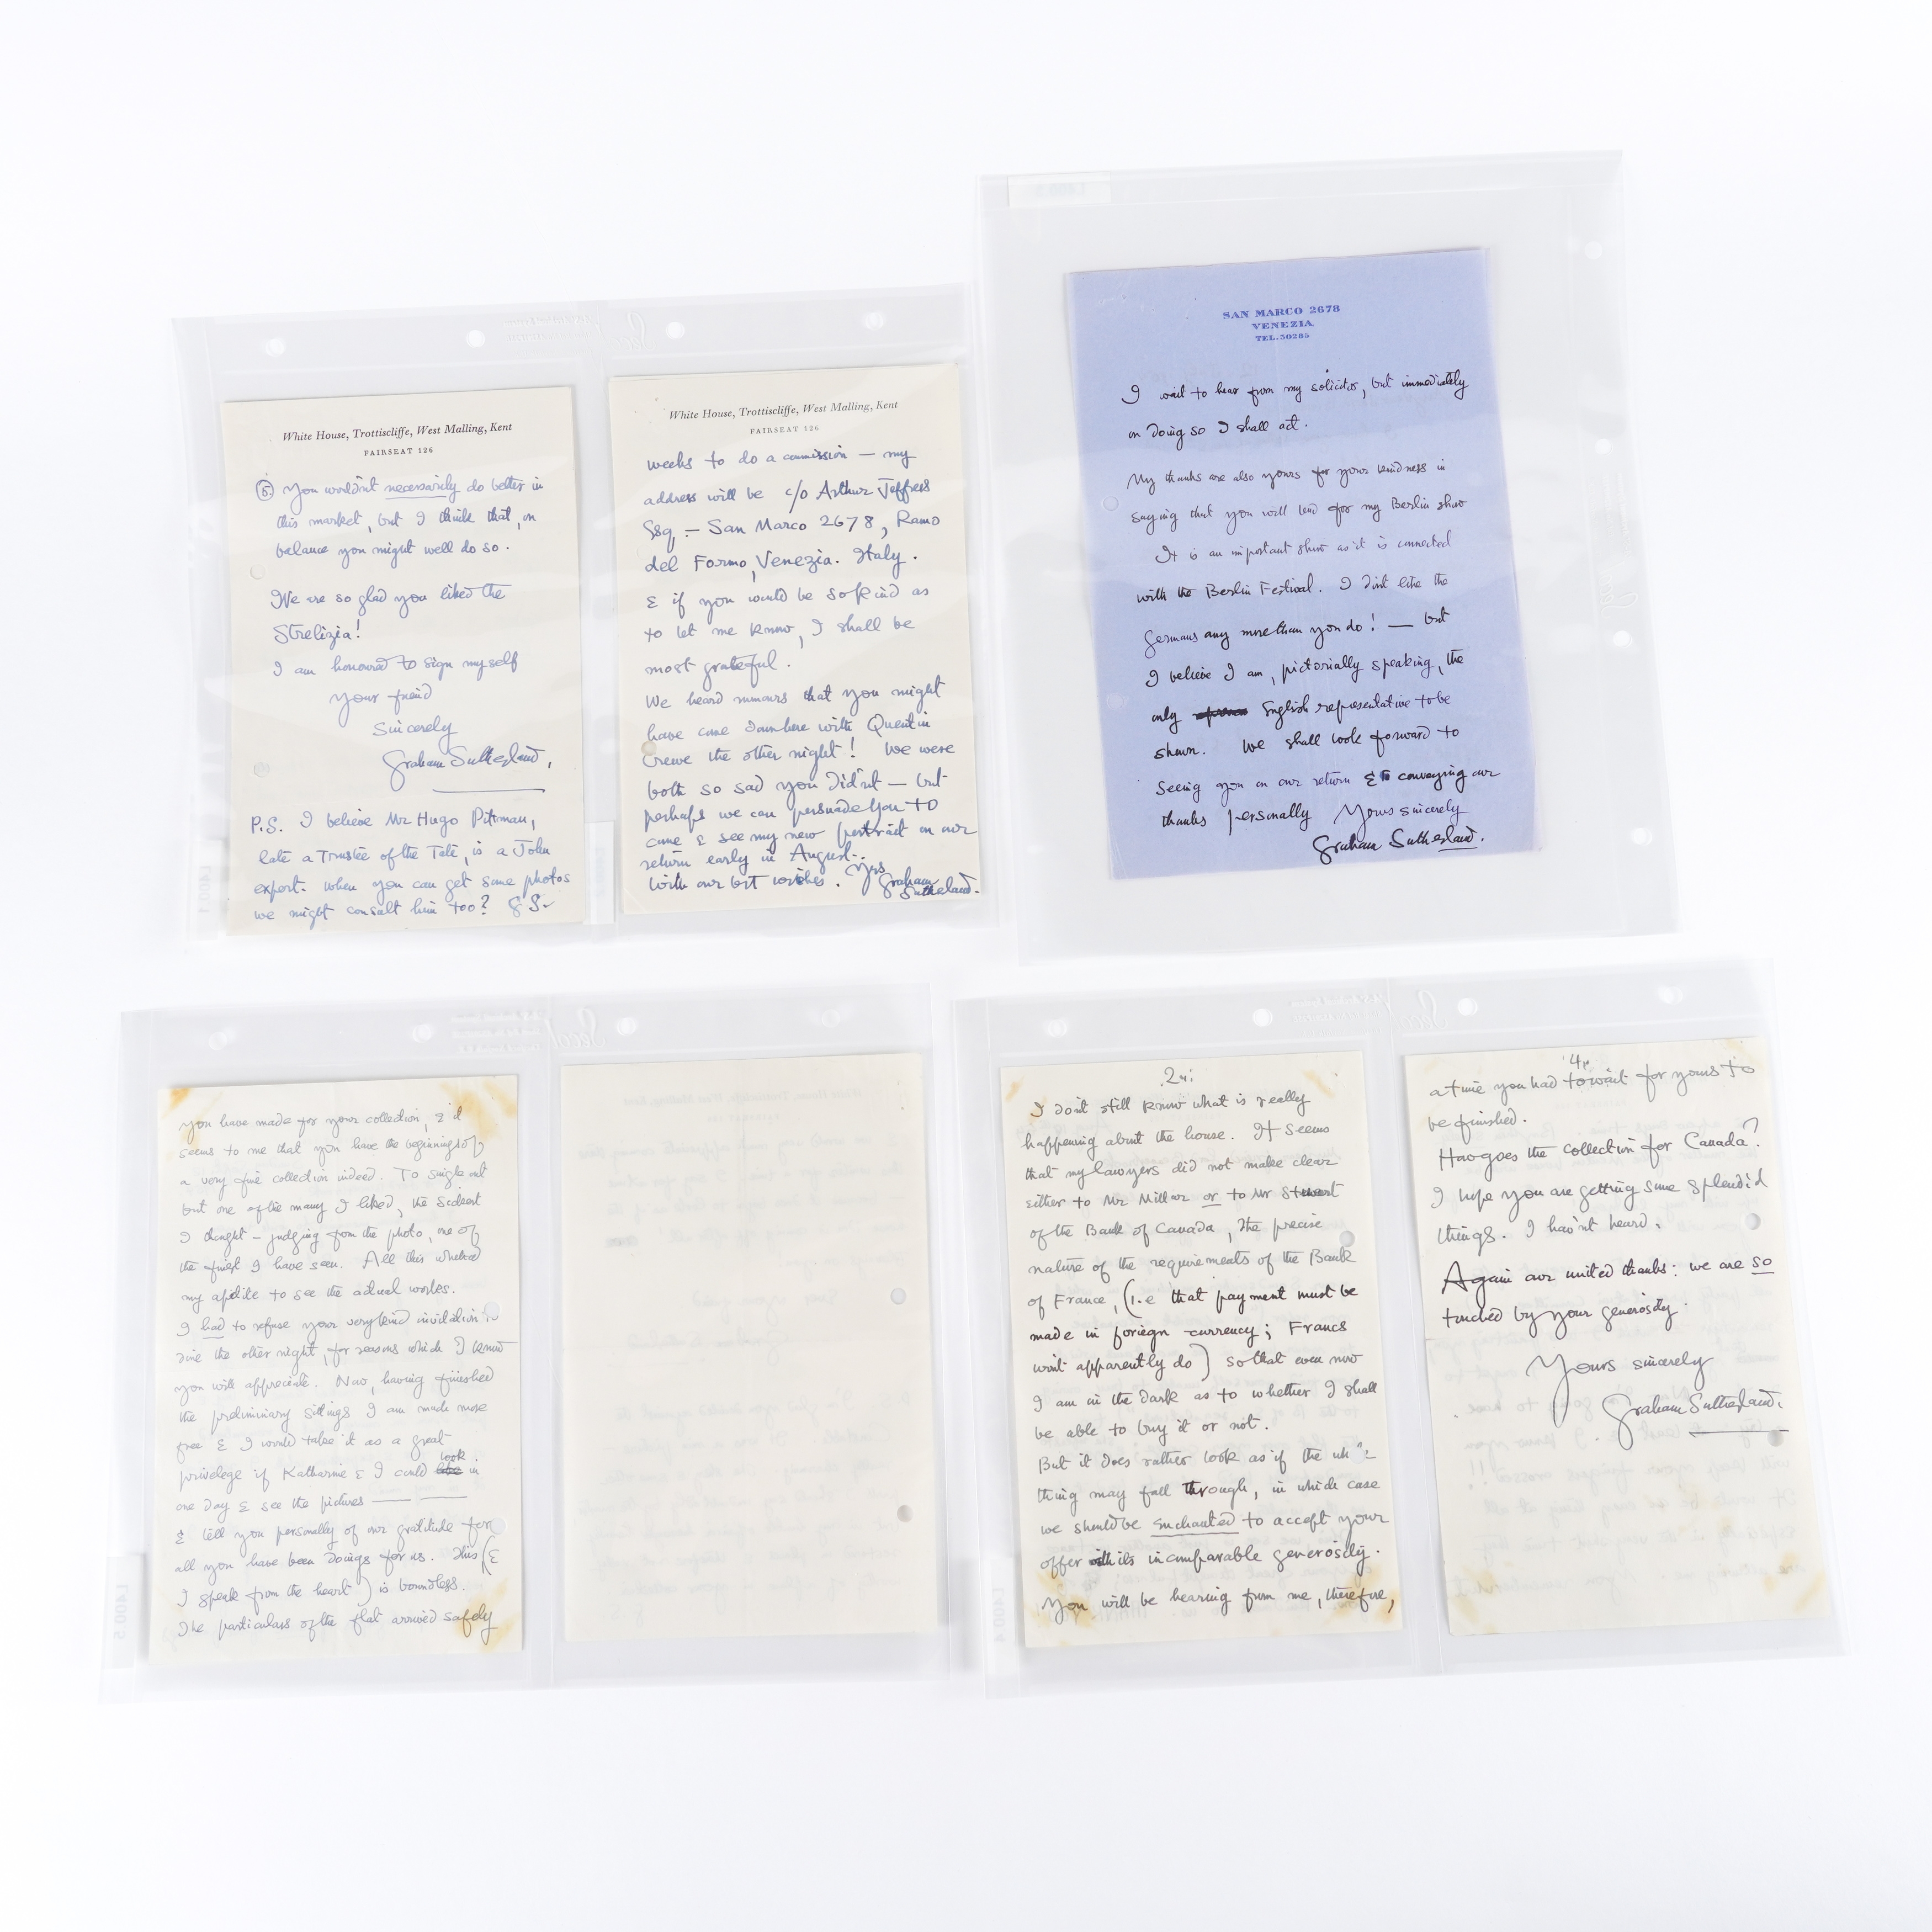 White House, Trottiscliffe, West Malling, Kent
FAIRSEAT 126
⑤ You wouldn't necessarily do better in
this market, but I think that, on
balance you might well do so.
We are so glad you liked the
Strelizia!
I am honoured to sign myself
your friend
Sincerely
Graham Sutherland.
P.S. I believe Mr Hugo Pitman,
late a Trustee of the Tate, is a John
expert. When you can get some photos
we might consult him too? G S.
White House, Trottiscliffe, West Malling, Kent
FAIRSEAT 126
weeks to do a commission — my
address will be c/o Arthur Jeffress
Esq — San Marco 2678, Ramo
del Formo, Venezia. Italy.
& if you would be so kind as
to let me know, I shall be
most grateful.
We heard rumours that you might
have come down here with Quentin
Crewe the other night! We were
both so sad you didn't — but
perhaps we can persuade you to
come & see my new portrait on our
return early in August.
With our best wishes. Yrs
Graham
Sutherland.
SAN MARCO 2678
VENEZIA
TEL.30285
I wait to hear from my solicitor, but immediately
on doing so I shall act.
My thanks are also yours for your kindness in
saying that you will lend for my Berlin show
It is an important show as it is connected
with the Berlin Festival. I dont like the
Germans any more than you do! — but
I believe I am, pictorially speaking, the
only English representative to be
shown. We shall look forward to
seeing you on our return & to conveying our
thanks personally Yours sincerely
Graham Sutherland.
you have made for your collection, & it
seems to me that you have the beginnings of
a very fine collection indeed. To single out
but one of the many I liked, the Sickert
I thought — judging from the photo, one of
the finest I have seen. All this whetted
my apetite to see the actual works.
I had to refuse your very kind invitation to
dine the other night, for reasons which I know
you will appreciate. Now, having finished
the preliminary sittings I am much more
free & I would take it as a great
look
privelege if Katharine & I could in
one day & see the pictures —— ——
& tell you personally of our gratitude for
all you have been doings for us. This (&
I speak from the heart) is boundless.
The particulars of the flat arrived safely
2
I dont still know what is really
happening about the house. It seems
that my lawyers did not make clear
either to Mr Millar or to Mr Stewart
of the Bank of Canada, the precise
nature of the requirements of the Bank
of France, (i.e that payment must be
made in foriegn currency; Francs
wont apparently do) so that even now
I am in the dark as to whether I shall
be able to buy it or not.
But it does rather look as if the
thing may fall through, in which case
we should be enchanted to accept your
offer with its incomparable generosity.
You will be hearing from me, therefore,
4
a time you had to wait for yours to
be finished.
How goes the collection for Canada?
I hope you are getting some splendid
things. I hav'nt heard.
Again our united thanks: we are so
touched by your generosity.
Yours sincerely
Graham Sutherland.